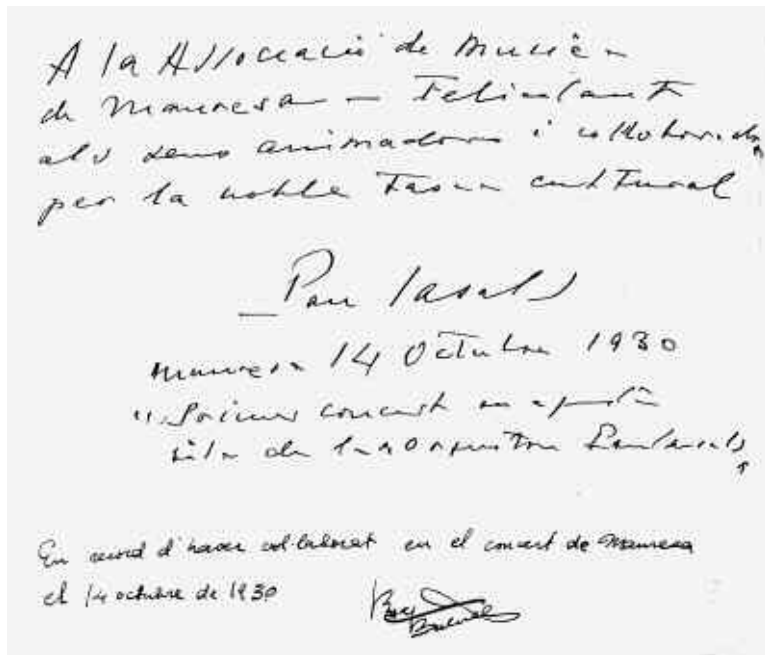 A la Associació de Música
de Manresa — Felicitant
als seus animadors i collaboradors
per la noble tasca cultural
Pau Casals
Manresa 14 Octubre 1930
"Primer concert en aquesta
de la Orquestra Pau Casals"
En record d'haver collaborat en el concert de Manresa
el 14 octubre de 1930